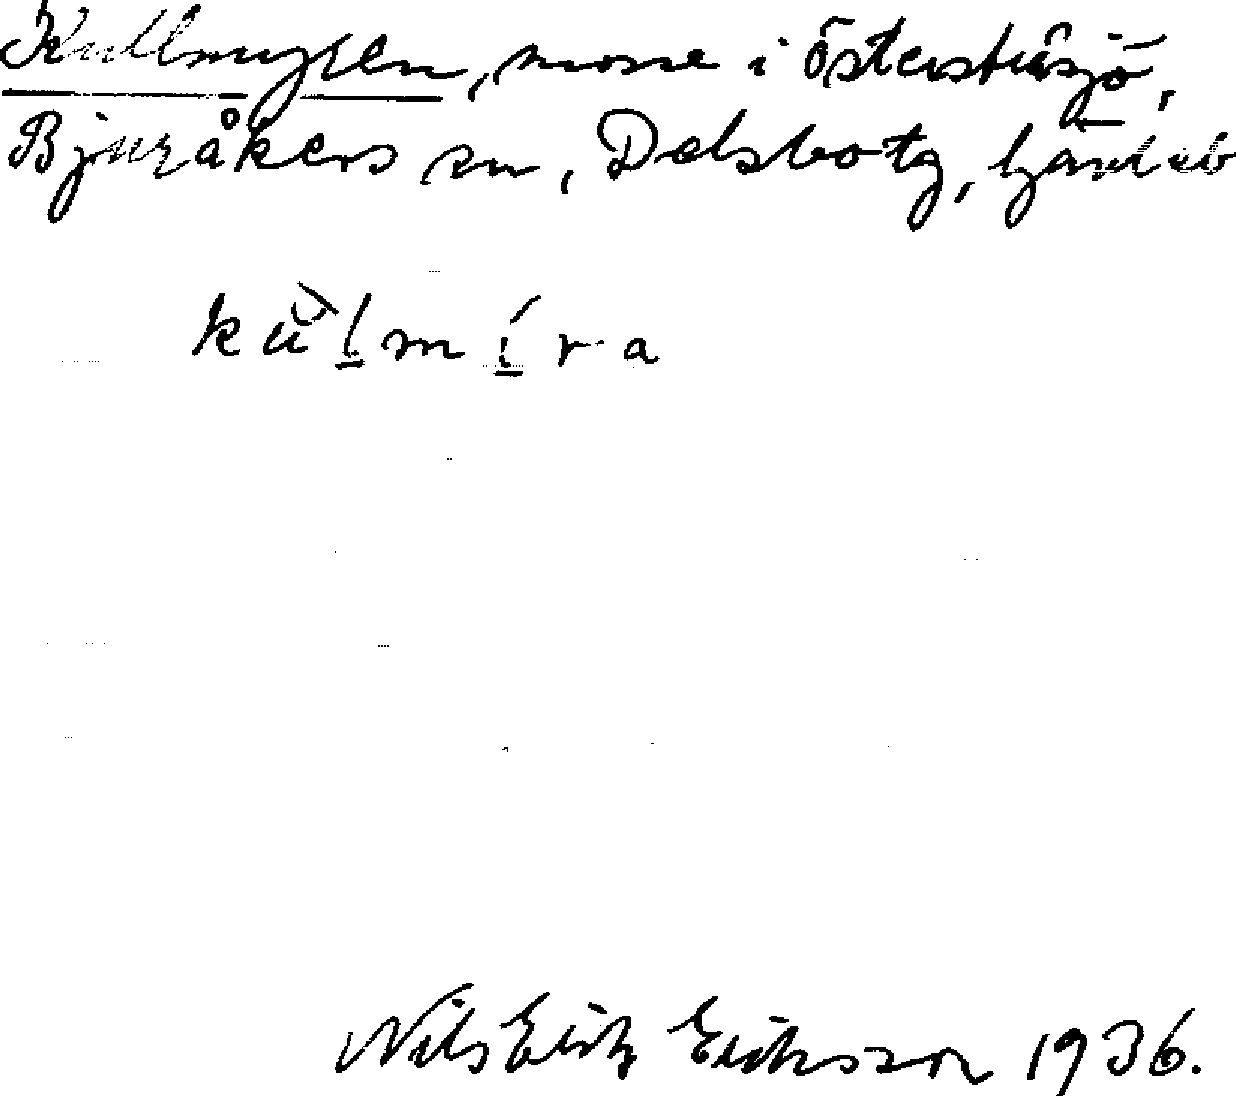 Kullmyren, mosse i Österstråsjö,
Bjuråkers sn, Delsbo tg, Hälsingl
kùlmíra
Nils Erik Eriksson 1936.